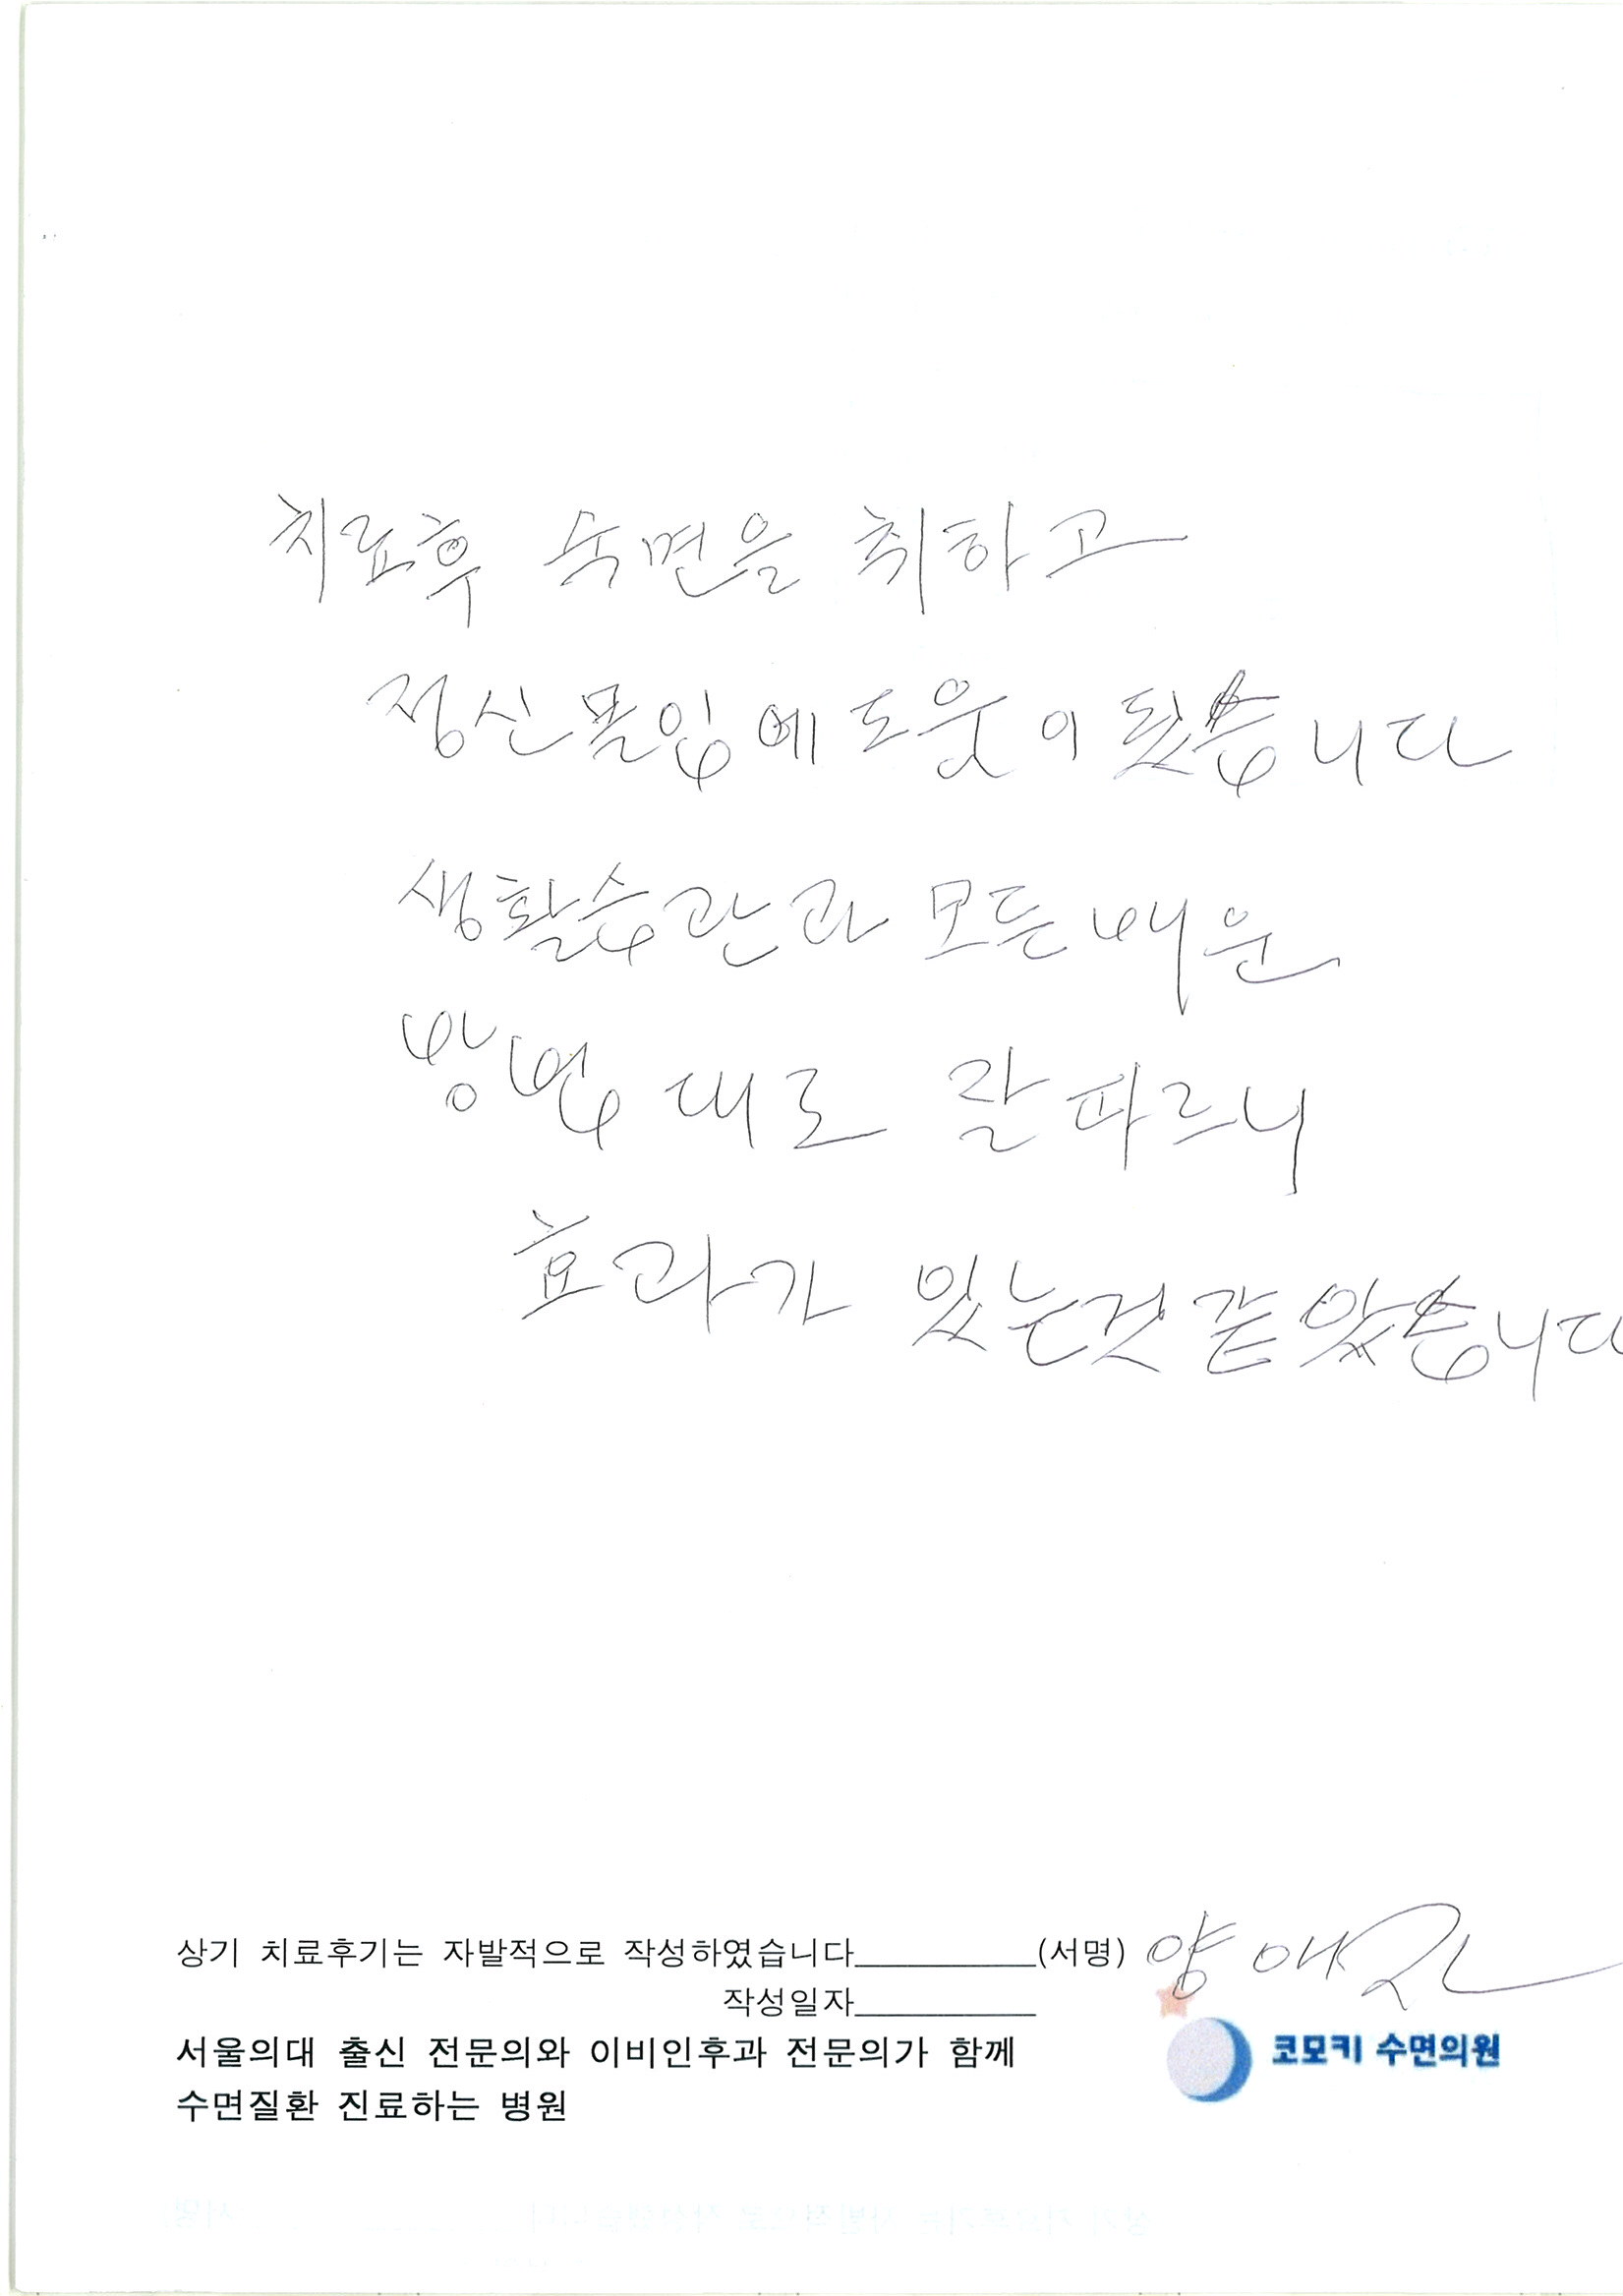 치료후 숙면을 취하고
정신몰입에 도움이 됐습니다
생활습관과 모든 배운
방법 대로 잘 따르니
효과가 있는것 같았습니다
상기 치료후기는 자발적으로 작성하였습니다__________(서명) 양애
작성일자__________
서울의대 출신 전문의와 이비인후과 전문의가 함께
수면질환 진료하는 병원
코모키 수면의원